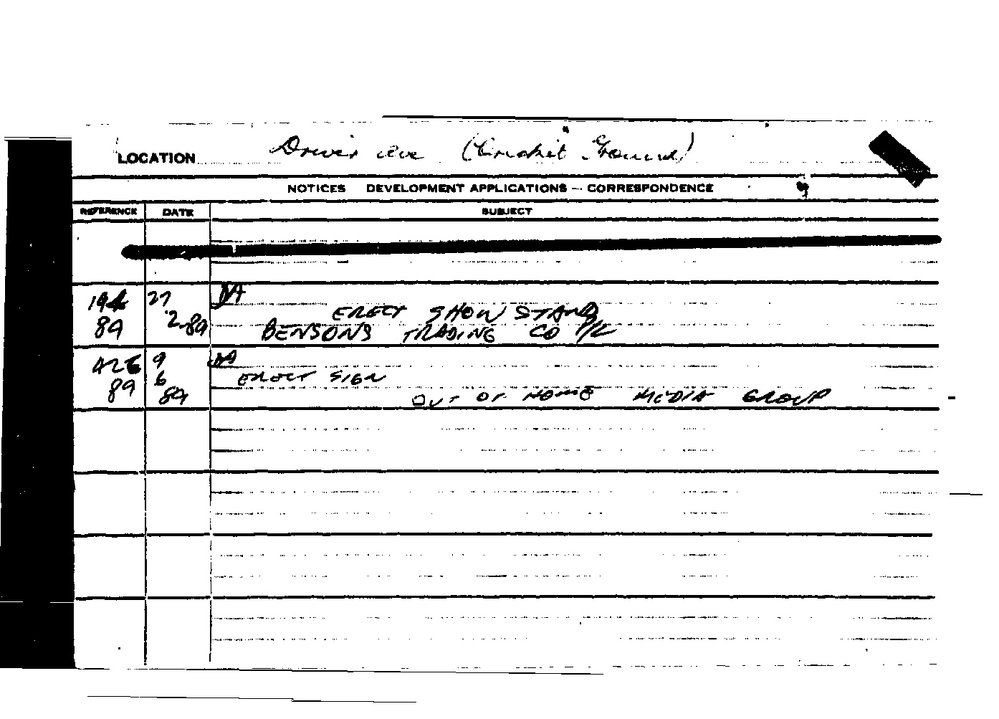 LOCATION Driver Ave (Cricket Ground)
NOTICES DEVELOPMENT APPLICATIONS — CORRESPONDENCE
REFERENCE DATE SUBJECT
194 27 DA
ERECT SHOW STAND
89 2.89 BENSONS TRADING CO P/L
426 9 DA
6 ERECT SIGN
89 89 OUT OF HOME MEDIA GROUP